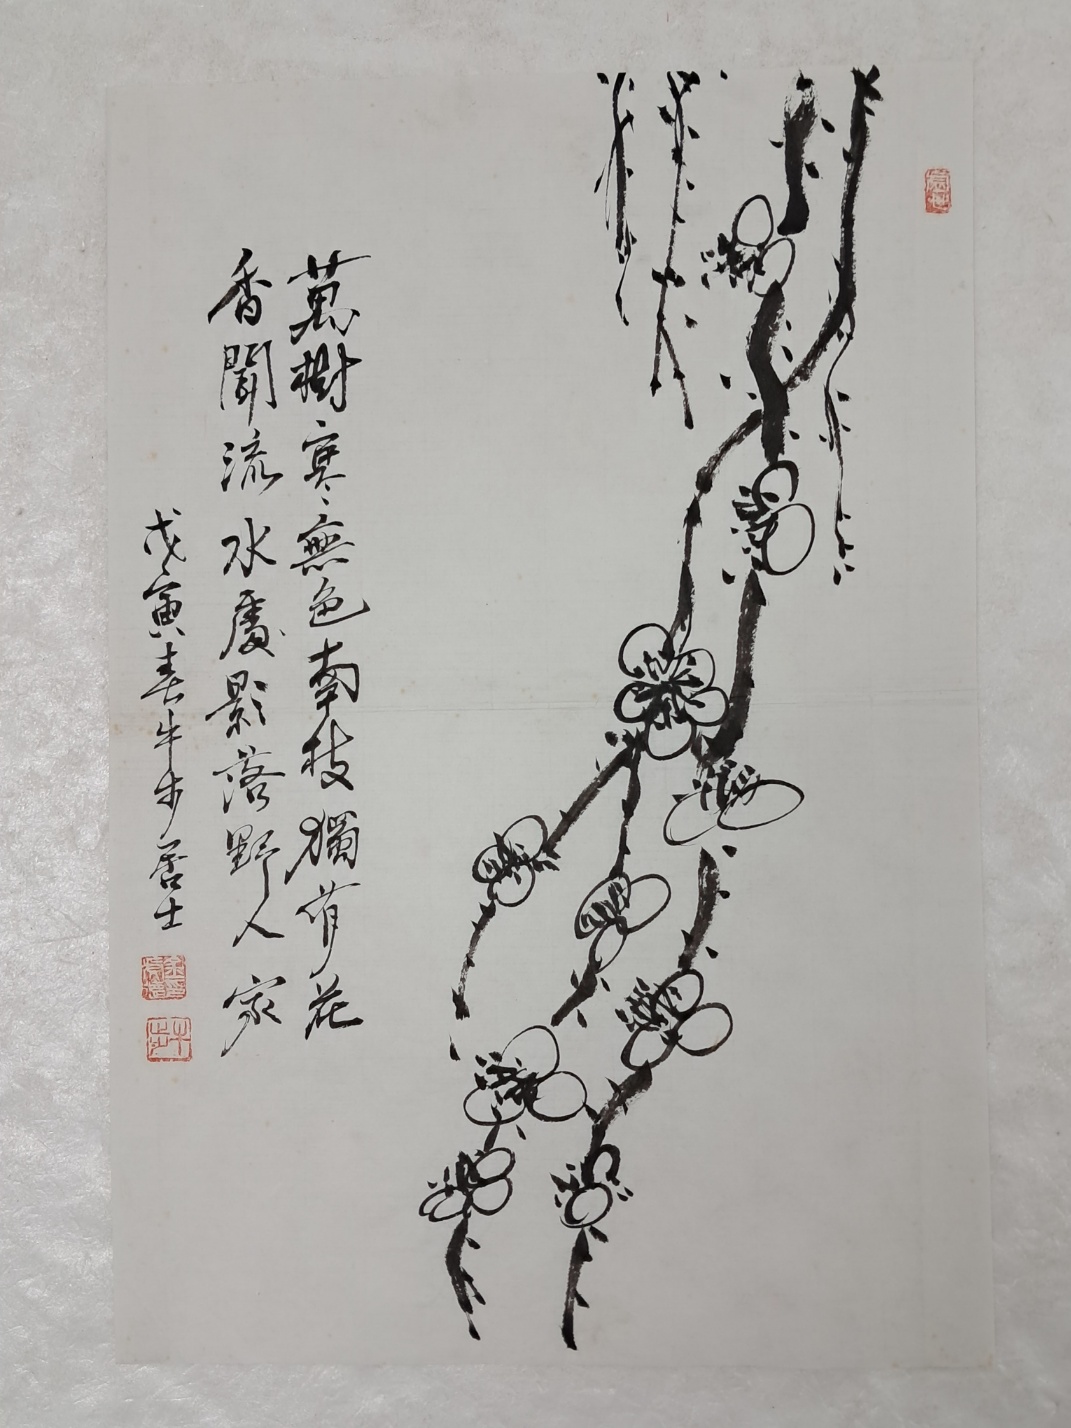 萬樹寒無色南枝獨有花
香聞流水處影落野人家
戊寅春牛步居士